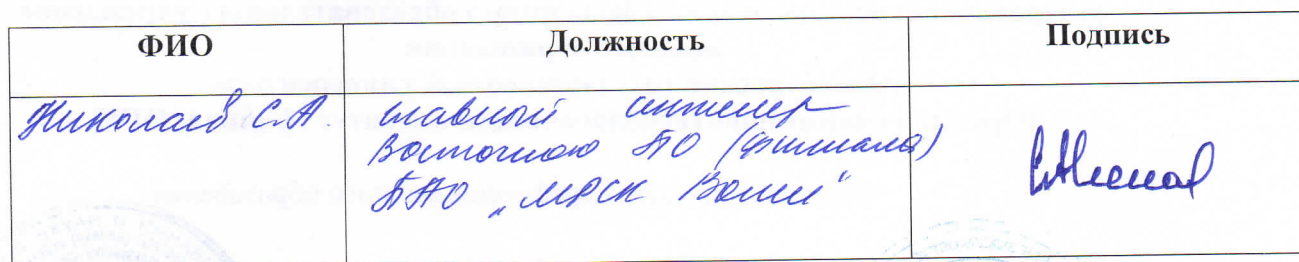 ФИО Должность Подпись
Николаев С.А главный инженер
Восточного ПО (филиала)
ПАО „МРСК Волги"